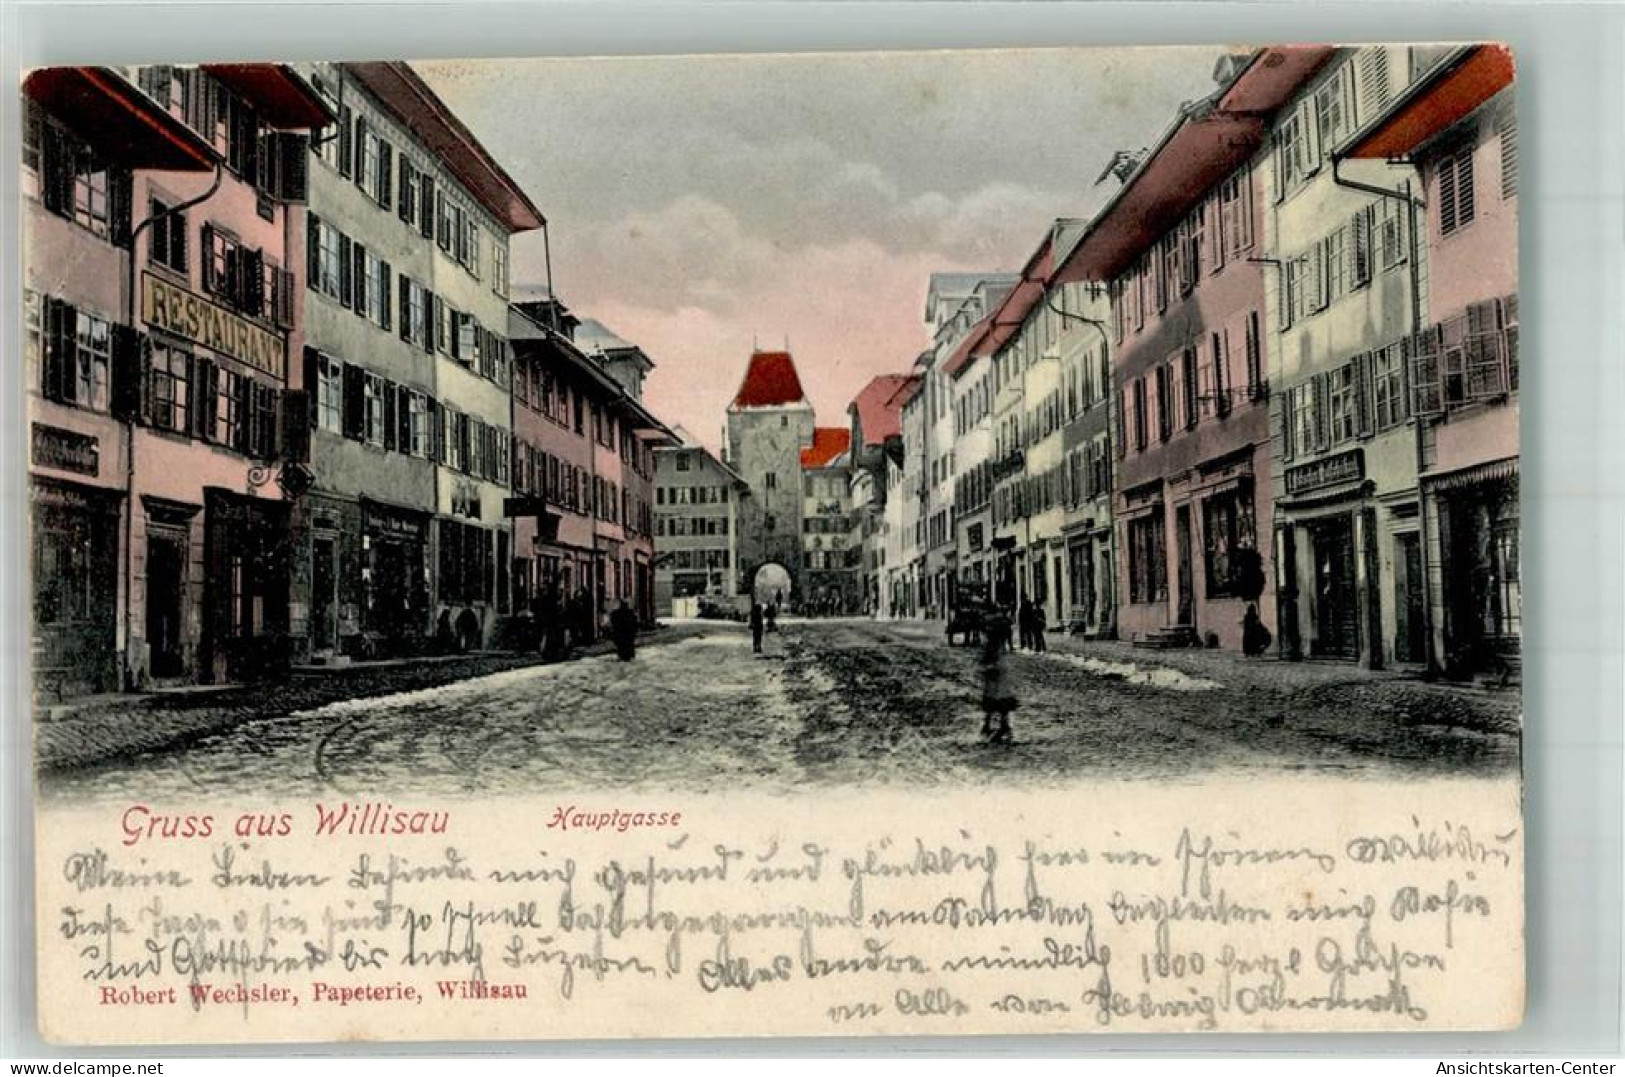 RESTAURANT
Gruss aus Willisau Hauptgasse
Meine Lieben Befinde mich gesund und glücklich hier im schönen Willisau
diese Tage o sie sind so schnell dahingegangen am Samstag begleiten mich Rosie
und Gottfried bis nach Luzern. Alles andre mündlich 1000 herzl Grüsse
an Alle von Odermatt
Robert Wechsler, Papeterie, Willisau
Ansichtskarten-Center